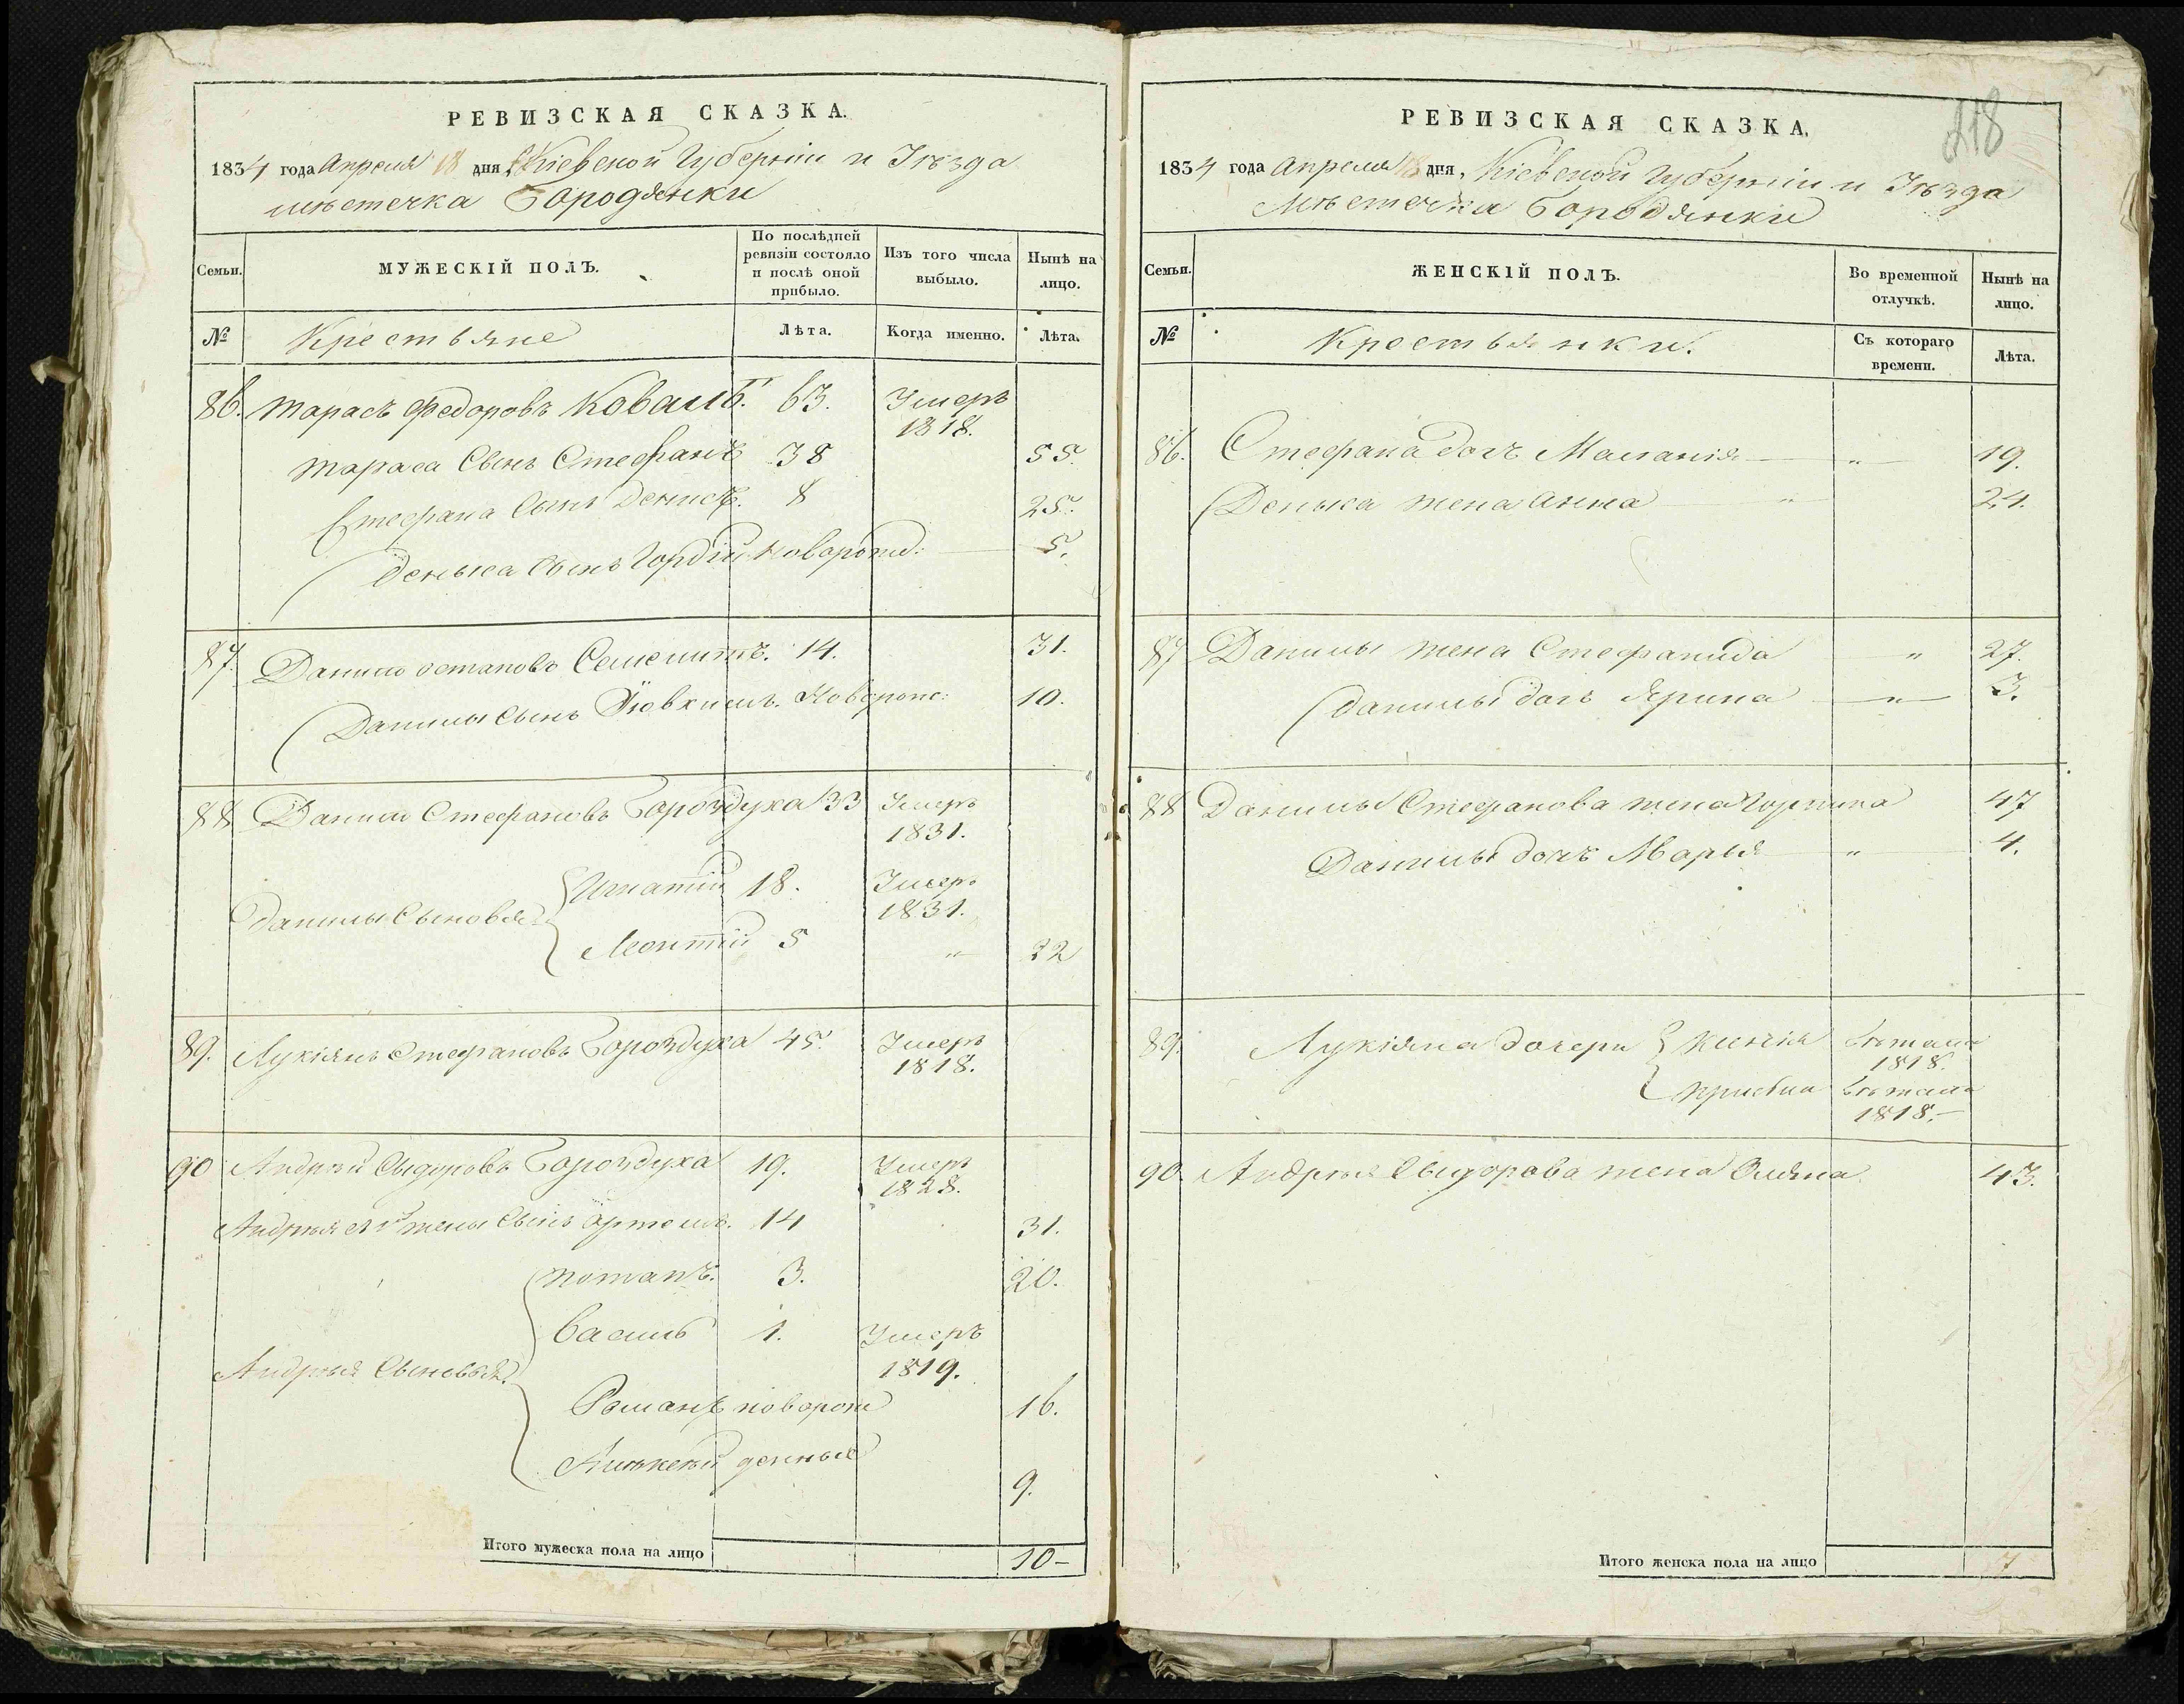 РЕВИЗСКАЯ СКАЗКА.
1834 года Апреля 18 дня, Кіевской Губерніи и Уѣзда
мѣстечка Бородянки
Семьи.
МУЖЕСКІЙ ПОЛЪ.
По послѣдней ревизіи состояло и послѣ оной прибыло.
Изъ того числа выбыло.
Нынѣ на лицо.
№
Крестьяне
Лѣта.
Когда именно.
Лѣта.
86. Тарасъ Федоровъ Коваль. 63. Умеръ
1818.
Тараса Сынъ Стефанъ 38 55.
Стефана Сынъ Денисъ. 8 25.
Деныса Сынъ Гордій новорожд: 5.
87. Данило Остаповъ 14. 31.
Данилы Сынъ Новорож: 10.
88 Данило Стефановъ Бороздуха 33 Умеръ
1831.
Игнатій 18. Умеръ
1831.
Данилы Сыновья
Леонтій 5 " 22
89. Лукіянъ Стефановъ Бороздуха 45. Умеръ
1818.
90 Андрей Сыдоровъ Бороздуха 19. Умеръ
1828.
Андрея 1й жены Сынъ Артемъ. 14 31.
Потапъ. 3. 20.
Василь 1. Умеръ
Андрея Сыновья. 1819.
Романъ новорож 16.
денные 9.
Итого мужеска пола на лицо 10-
218
РЕВИЗСКАЯ СКАЗКА.
1834 года Апреля 18 дня, Кіевской Губерніи и Уѣзда
Мѣстечка Бородянки
Семьи.
ЖЕНСКІЙ ПОЛЪ.
Во временной отлучкѣ.
Нынѣ на лицо.
№
Крестьянки.
Съ котораго времени.
Лѣта.
86. Стефана дочъ Маланія " 19.
Деныса жена Анна " 24.
87 Данилы жена Стефанида " 27.
Данилы дочъ Ярина " 3.
88 Данилы Стефанова жена Горпина 47
Данилы дочъ Марья " 4.
89. Лукіяна дочери
1818.
1818.-
90. Андрея Сыдорова жена Оляна 43.
Итого женска пола на лицо 7